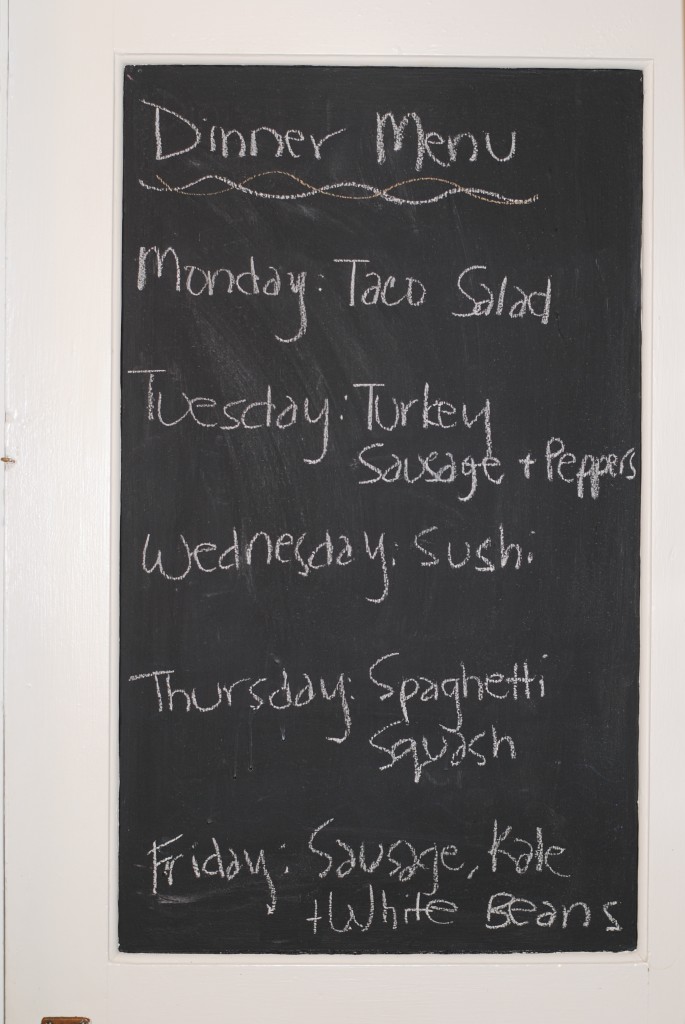 Dinner Menu
Monday: Taco Salad
Tuesday: Turkey
Sausage + Peppers
Wednesday: Sushi
Thursday: Spaghetti
Squash
Friday: Sausage, Kale
+ White Beans